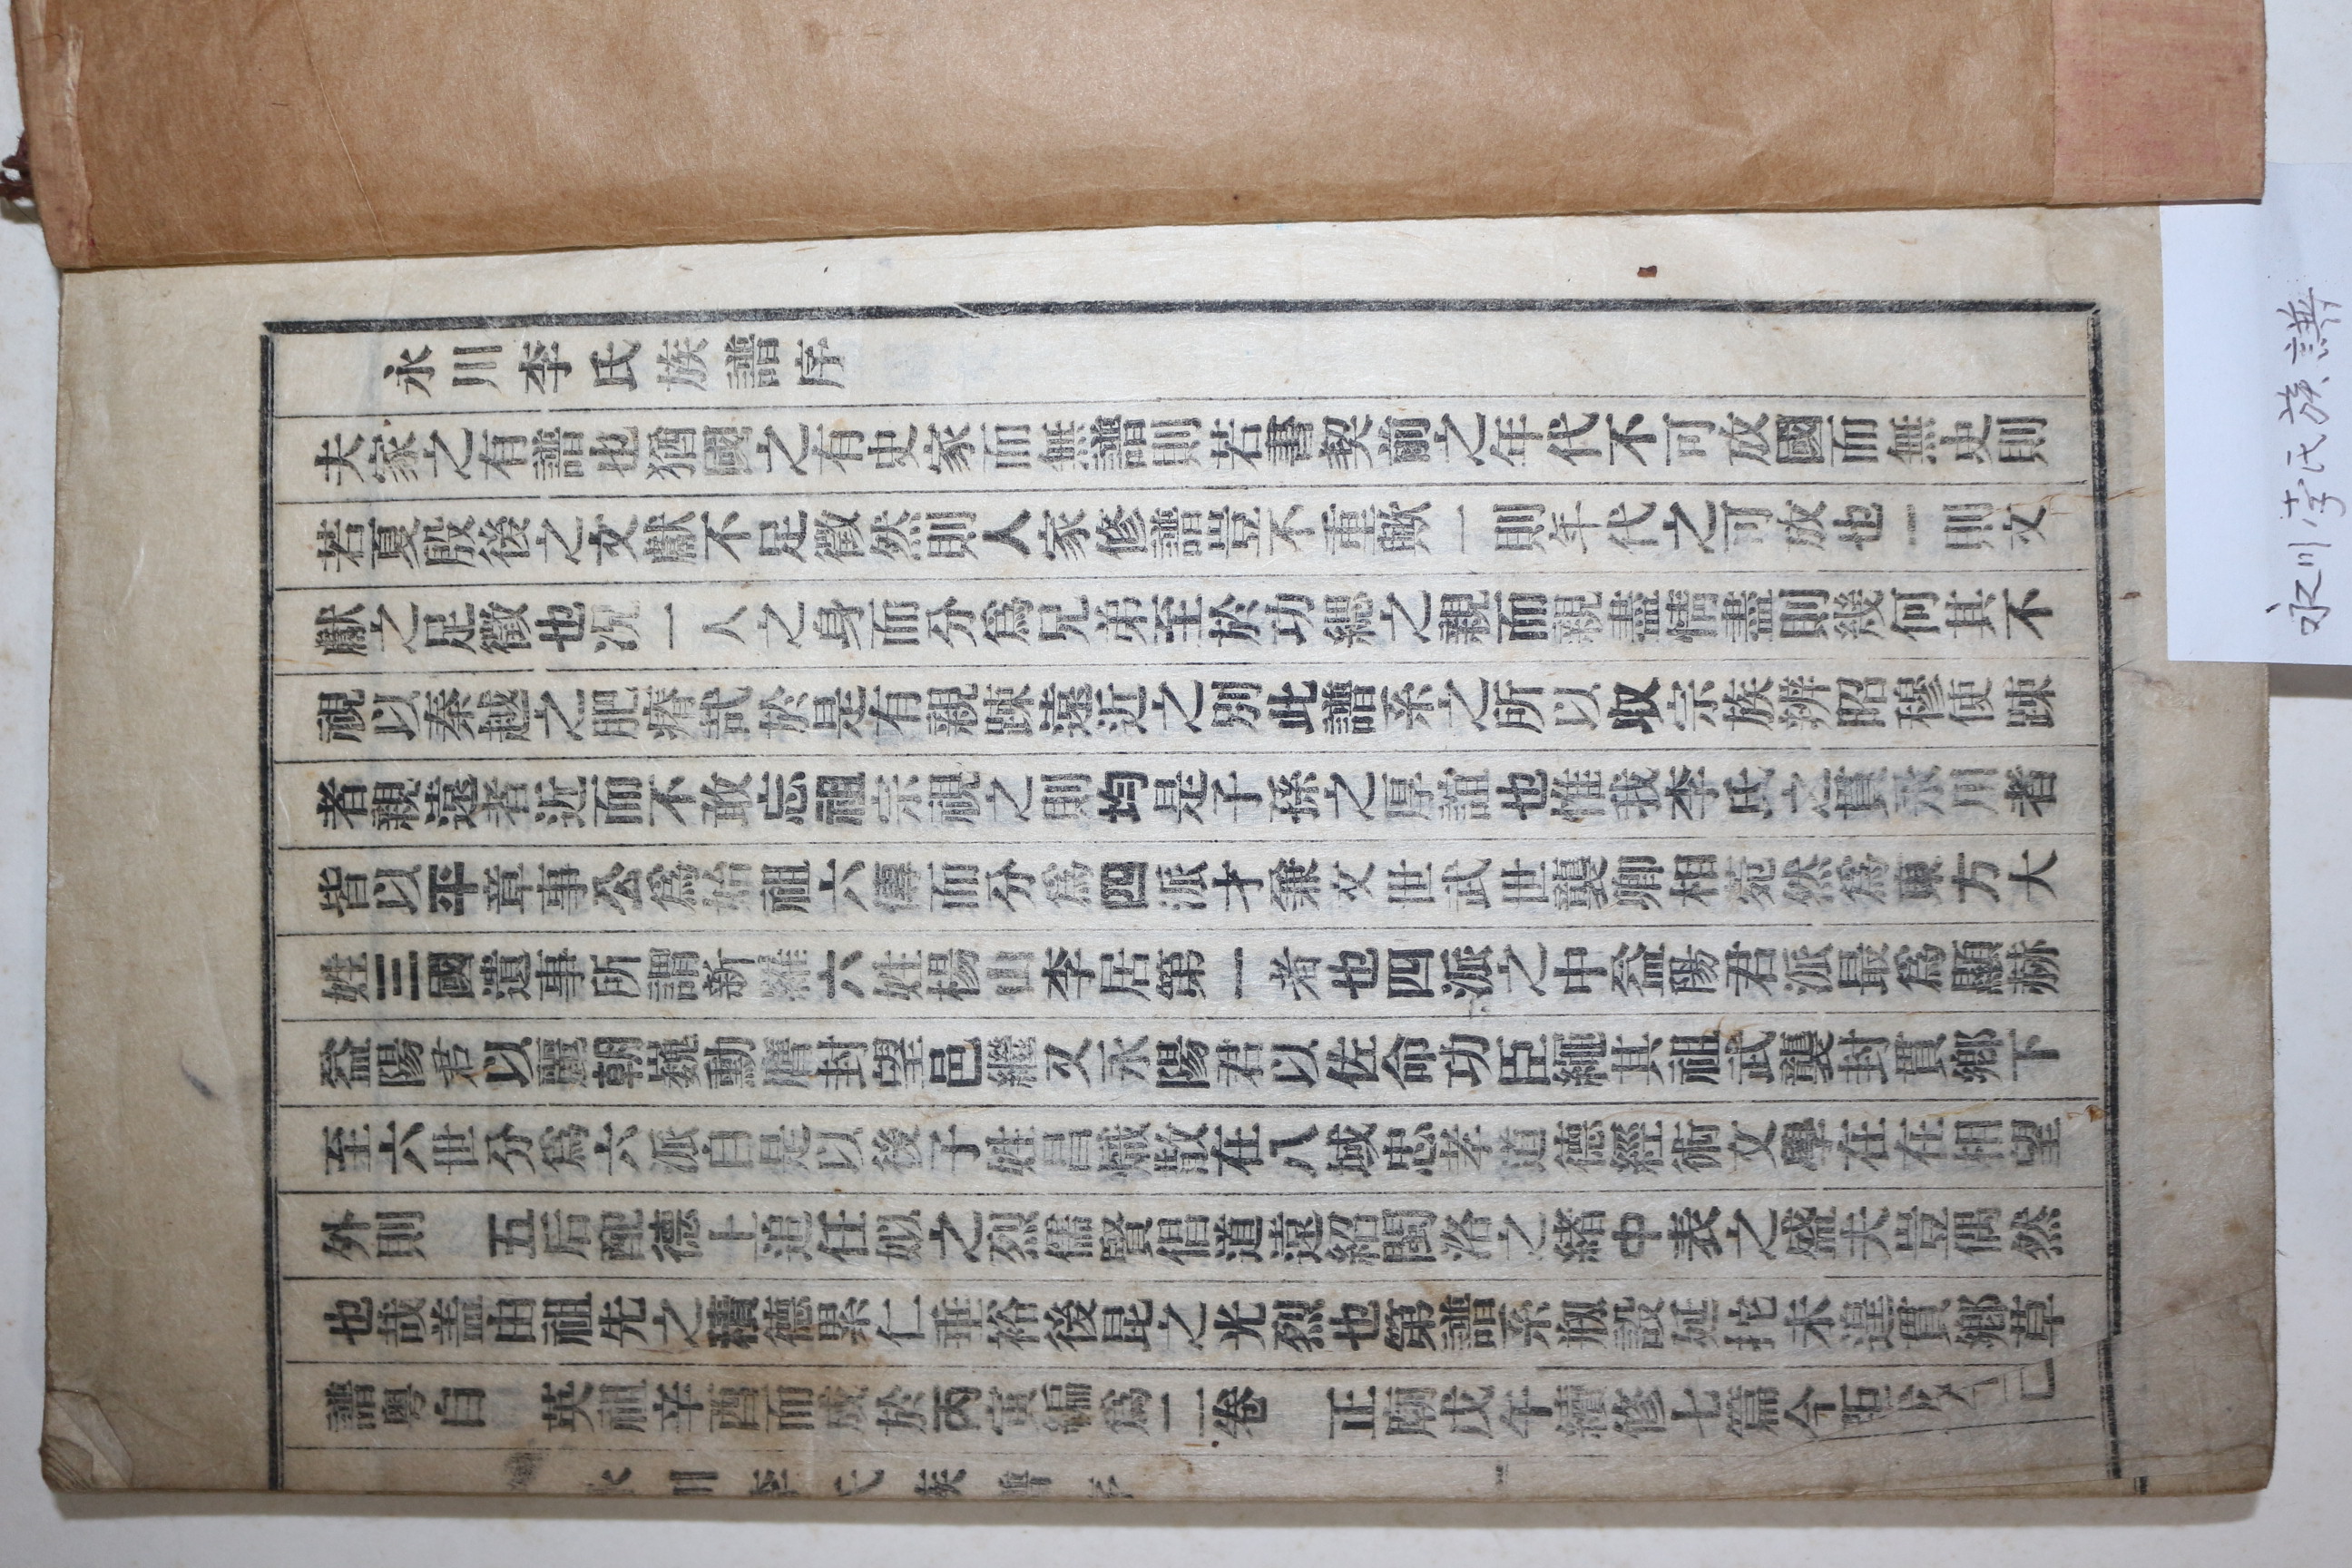 永川李氏族譜序
夫家之有譜也猶國之有史家而無譜則若書契前之年代不可攷國而無史則
若夏殷後之文獻不足徵然則人家修譜豈不重歟一則年代之可攷也一則文
獻之足徵也况一人之身而分爲兄弟至於功緦之親而親盡情盡則幾何其不
視以秦越之肥瘠哉於是有親踈遠近之別此譜系之所以収宗族辨昭穆使踈
者親遠者近而不敢忘祖宗視之則均是子孫之厚誼也惟我李氏之貫永川者
皆以平章事公爲始祖六傳而分爲四派才兼文世武世襲卿相菀然爲東方大
姓三國遺事所謂新羅六姓楊山李居第一者也四派之中益陽君派最爲顯赫
益陽君以麗朝巍勳膺封望邑繼又永陽君以佐命功臣繩其祖武襲封貫鄉下
至六世分爲六派自是以後子姓昌熾散在八域忠孝道德經術文學在在相望
外則 五后配德上追任姒之烈儒賢倡道遠紹閩洛之緖中表之盛夫豈偶然
也哉盖由祖先之積德累仁垂裕後昆之光烈也第譜系刱設延拕未遑貫鄉草
譜粤自 英祖辛酉而成於丙寅編爲二卷 正廟戊午續修七篇今距戊
永川李氏族譜序
永川李氏族譜